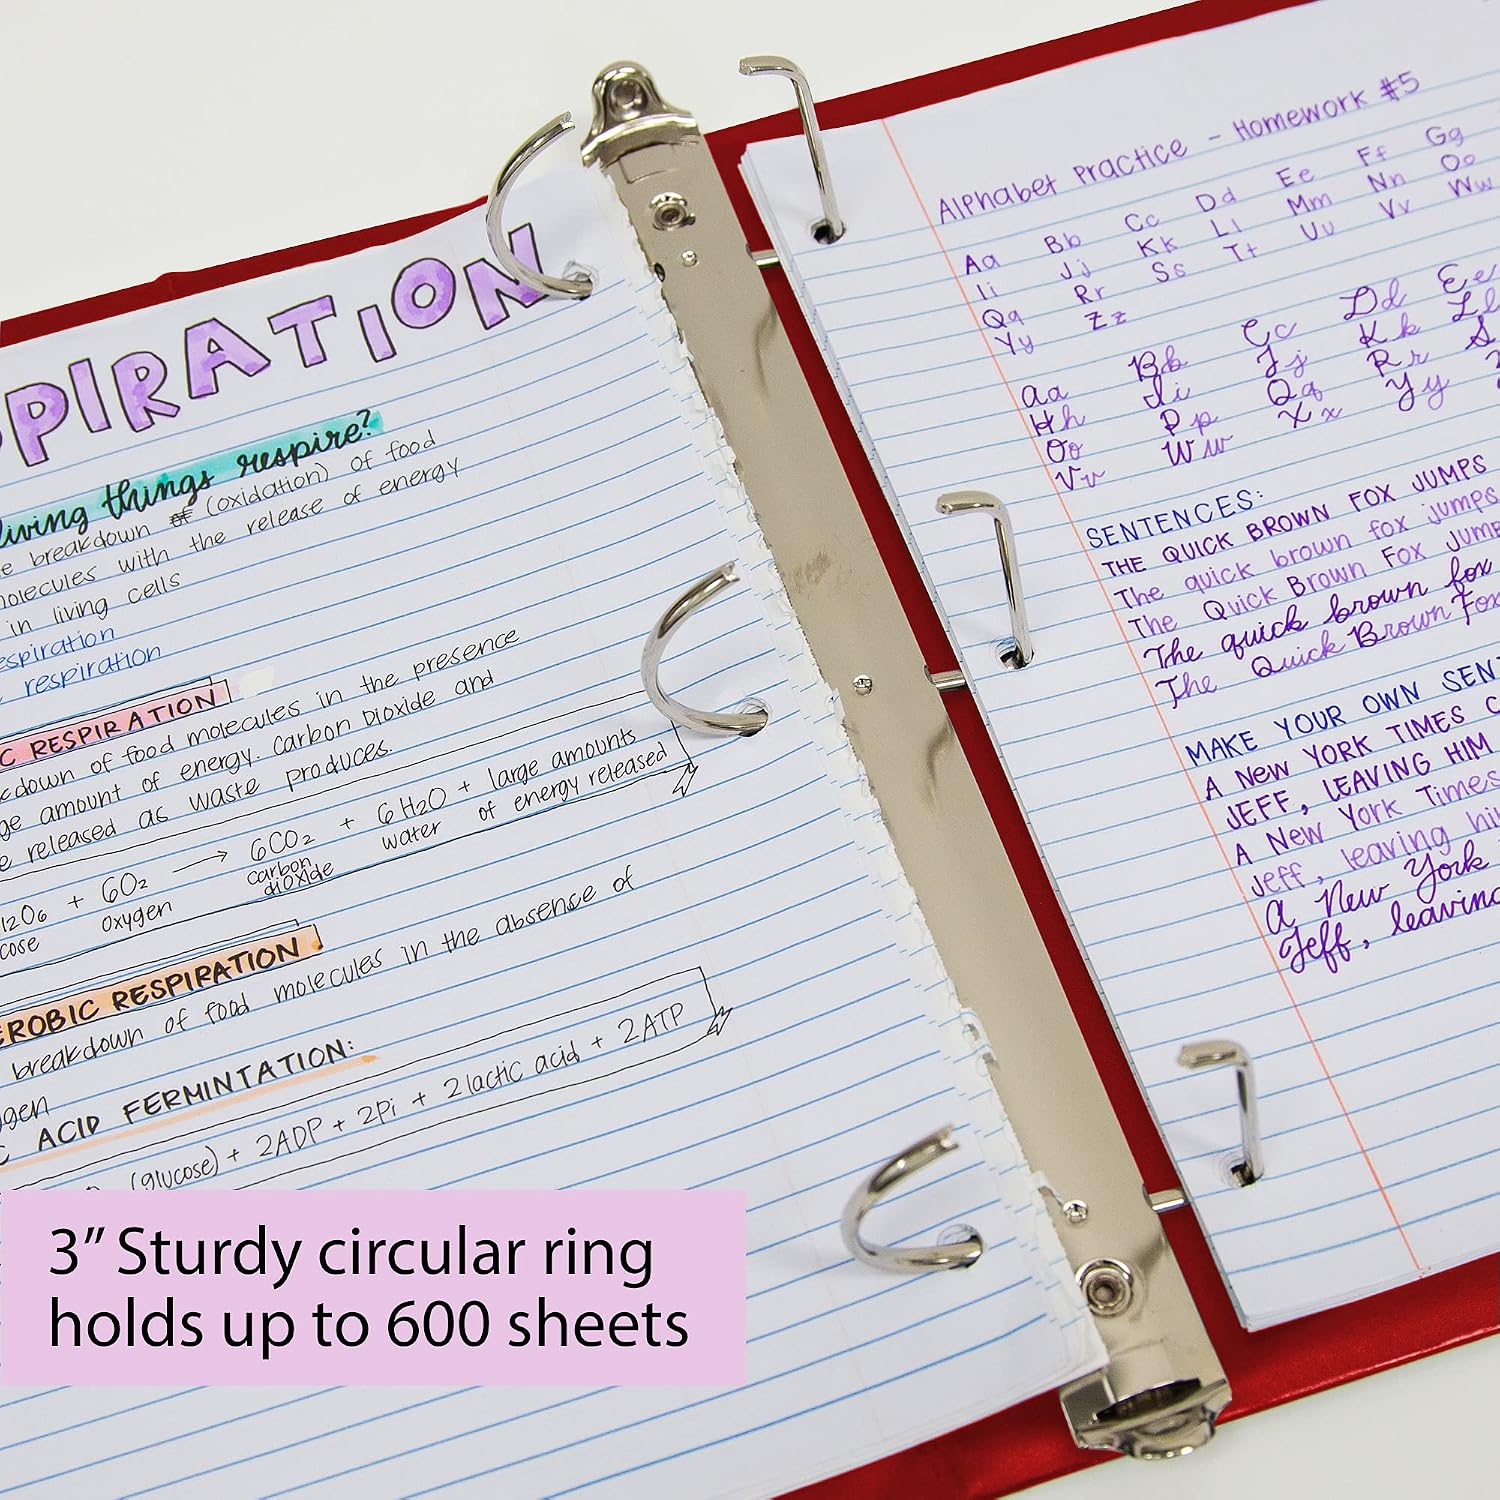 PIRATION
living things respire?
breakdown of (oxidation) of food
molecules with the release of energy
in living cells
respiration
respiration
C RESPIRATION
kdown of food molecules in the presence
ge amount of energy. Carbon Dioxide and
e released as waste produces.
12O6 + 6O2 → 6CO2 + 6H2O + large amounts
cose oxygen carbon dioxide water of energy released
EROBIC RESPIRATION
breakdown of food molecules in the absence of
gen
C ACID FERMINTATION:
(glucose) + 2ADP + 2Pi + 2lactic acid + 2ATP
3” Sturdy circular ring
holds up to 600 sheets
Alphabet Practice - Homework #5
Aa Bb Cc Dd Ee Ff Gg
Ii Jj Kk Ll Mm Nn Oo
Qq Rr Ss Tt Uu Vv Ww
Yy Zz
Aa Bb Cc Dd Ee
Hh Ii Jj Kk Ll
Oo Pp Qq Rr S
Vv Ww Xx Yy
SENTENCES:
THE QUICK BROWN FOX JUMPS
The quick brown fox jumps
The Quick Brown Fox Jump
The quick brown fox
The Quick Brown Fox
MAKE YOUR OWN SEN
A NEW YORK TIMES C
JEFF, LEAVING HIM
A New York Times
Jeff, leaving hi
A New York
Jeff, leaving